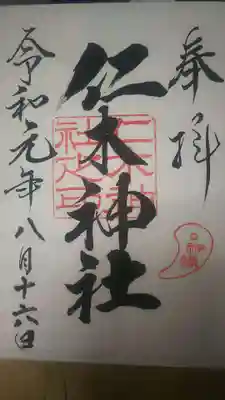 奉拝
仁木神社
仁木神社之印
令和元年八月十六日